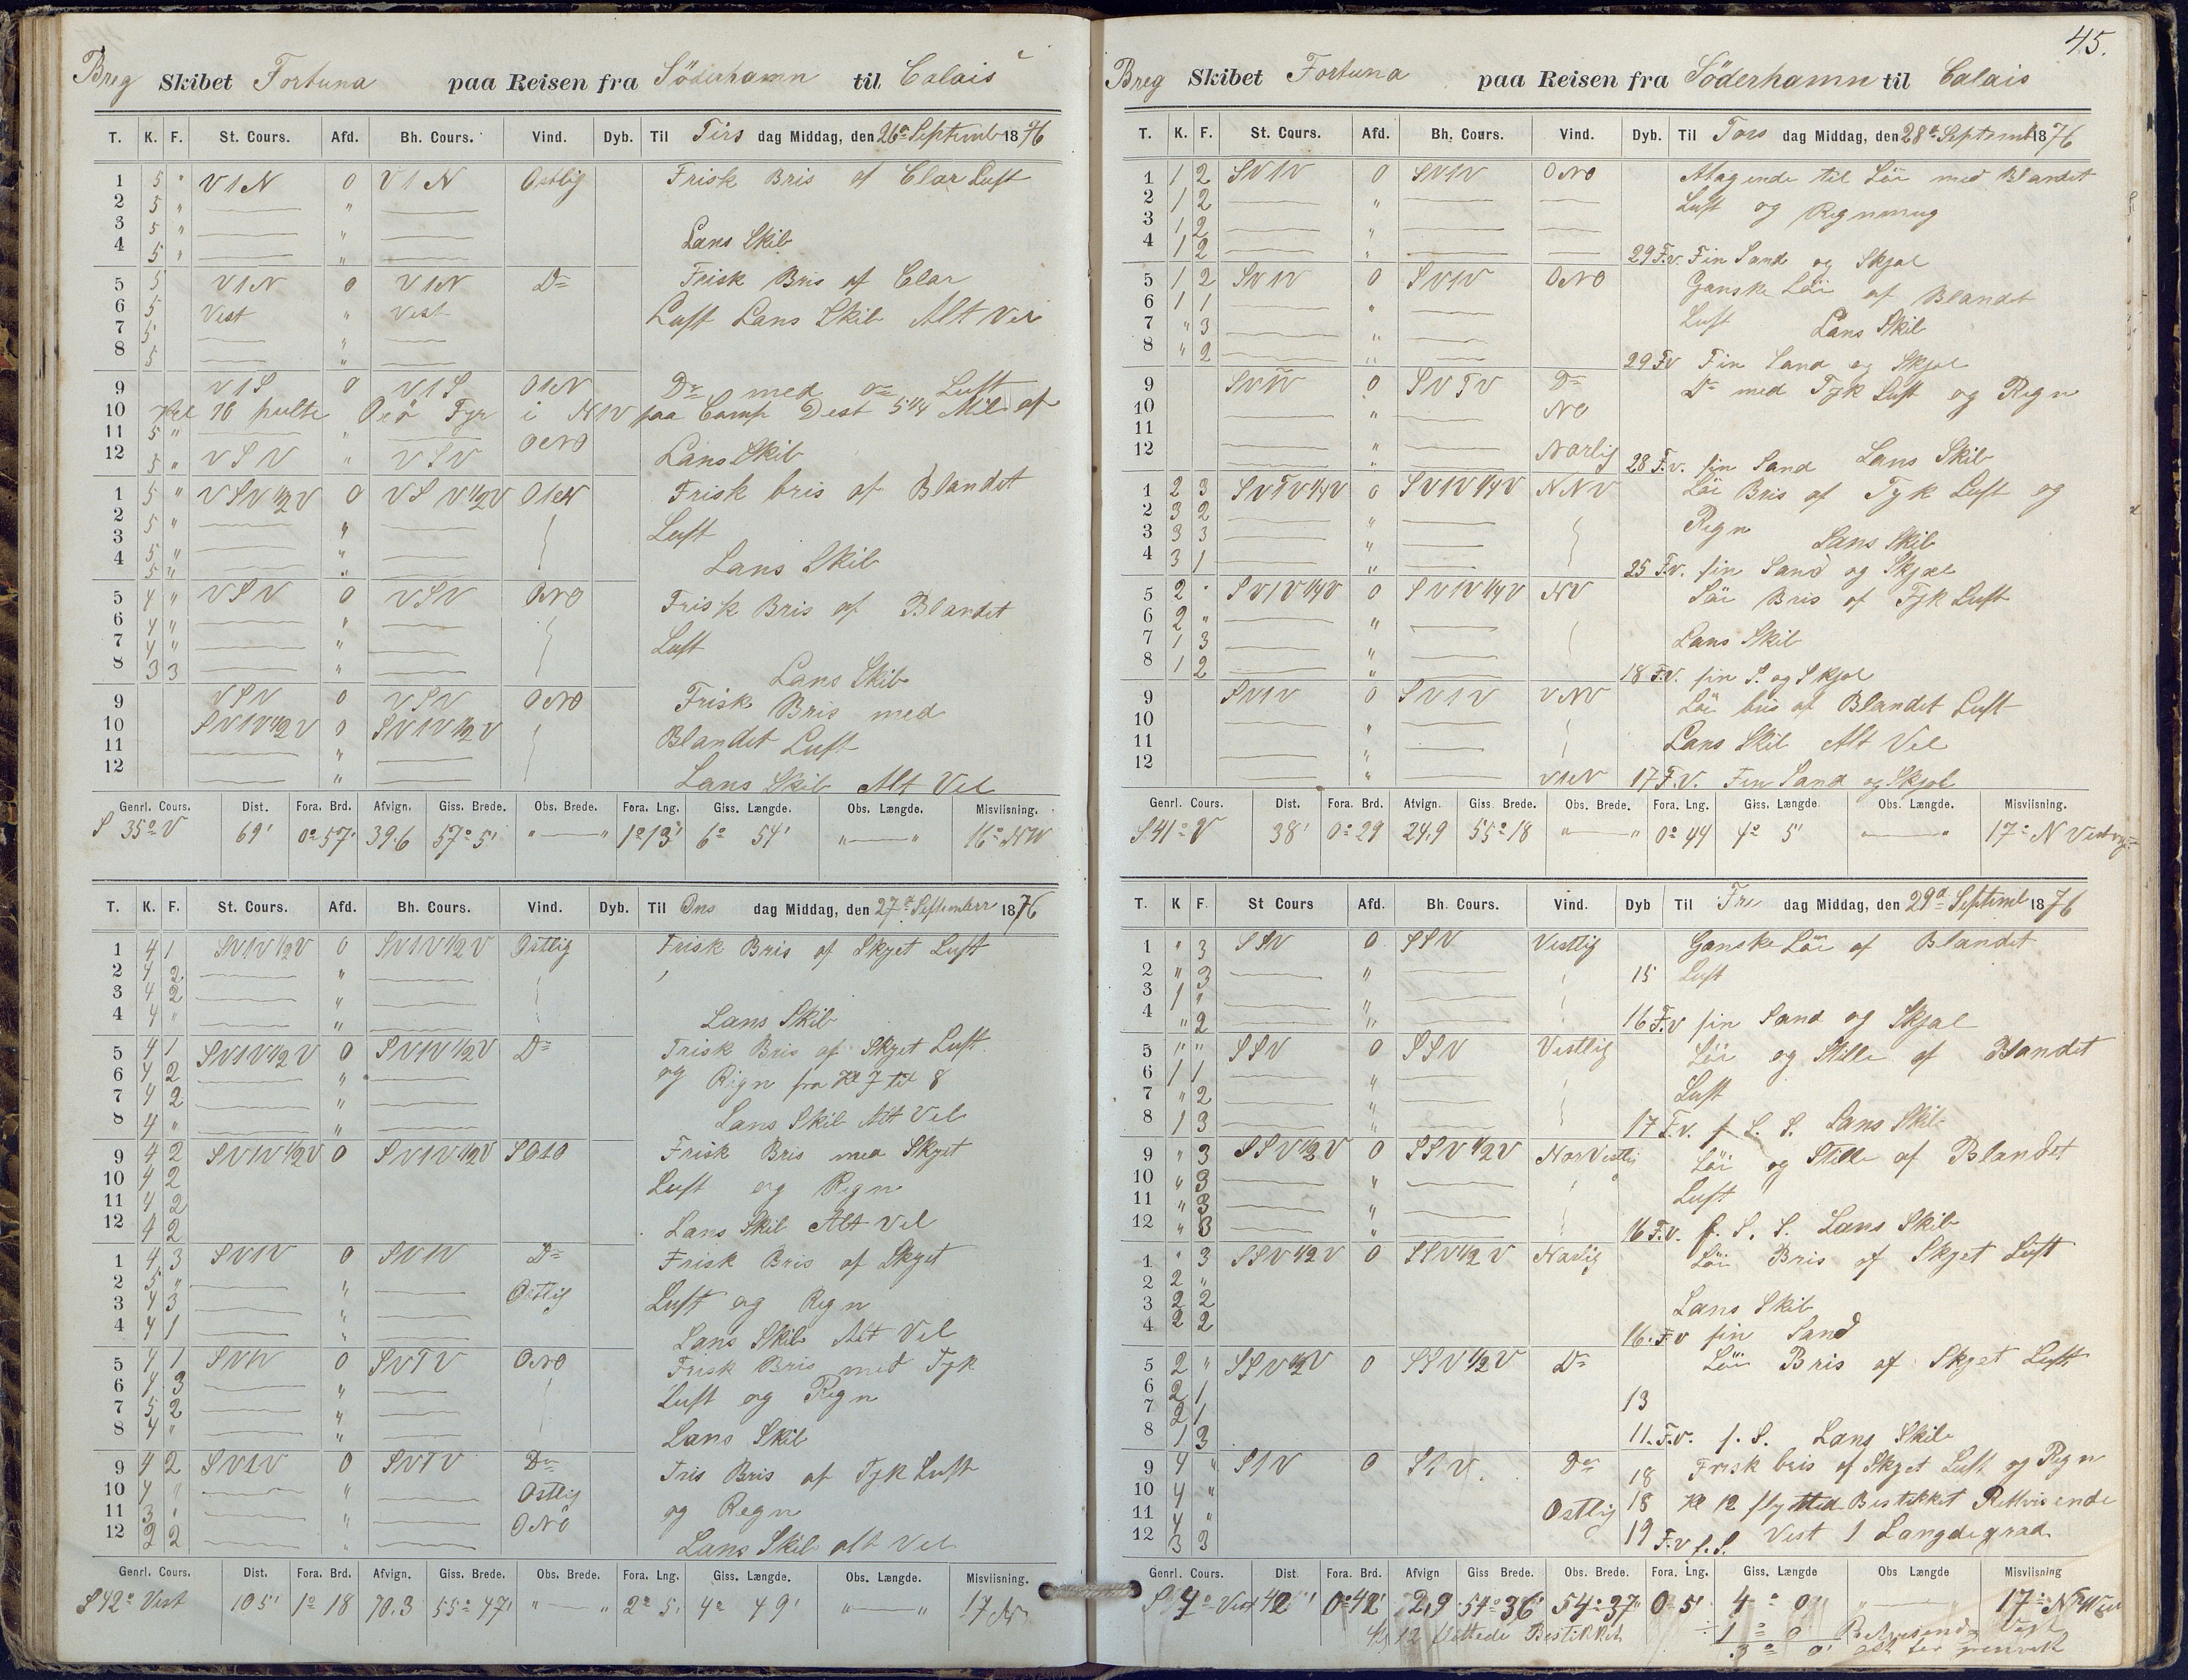 Breg Skibet Fortuna paa Reisen fra Söderhamn til Calais
T. K. F. St. Cours. Afd. Bh. Cours. Vind. Dyb. Til Tirs dag Middag, den 26de Septemb 1876
1 5 " V1N 0 V1N Ostlig Frisk Bris af Clar Luft
2 5 " — " —
3 5 " — " — Lans Skib
4 5 " — " —
5 5 V1N 0 V1N Do Frisk Bris af Clar
6 5 Vest " Vest Luft Lans Skib Alt Vel
7 5 — " —
8 5 — " —
9 V1S 0 V1S O1N Do med do Luft
10 Kl 10 peilte Fyr i NW paa Comp Dest 5 1/4 Mil af
11 5 " — " — ONO
12 5 " VSV " VSV Lans Skib
1 5 " VSV 1/2 V 0 VSV 1/2 V O1N Frisk bris af Blandet
2 5 " — " — Luft
3 5 " — " —
4 5 " — " — Lans Skib
5 4 " VSV 0 VSV ONO Frisk Bris af Blandet
6 4 " — " — Luft
7 4 " — " —
8 3 3 — " — Lans Skib
9 VSV 0 VSV ONO Frisk Bris med
10 SV1V 1/2 V 0 SV1V 1/2 V Blandet Luft
11 — " —
12 — " — Lans Skib Alt Vel
Genrl. Cours. Dist. Fora. Brd. Afvign. Giss. Brede. Obs. Brede. Fora. Lng. Giss. Længde. Obs. Længde. Misviisning.
S 35o V 69' 0o 57' 39.6 57o 5' " — " 1o 13' 6o 54' " — " 16o NW
T. K. F. St. Cours. Afd. Bh. Cours. Vind. Dyb. Til Ons dag Middag, den 27de September 1876
1 4 1 SV1V 1/2 V 0 SV1V 1/2 V Ostlig Frisk Bris af Skyet Luft
2 4 2 — " —
3 4 2 — " —
4 4 " — " — Lans Skib
5 4 1 SV1V 1/2 V 0 SV1V 1/2 V Do Frisk Bris af Skyet Luft
6 4 2 — " — og Rign fra Kl 7 til 8
7 4 2 — " —
8 4 " — " — Lans Skib Alt Vel
9 4 2 SV1V 1/2 V 0 SV1V 1/2 V SO1O Frisk Bris med Skyet
10 4 2 Luft og Regn
11 4 2
12 4 2 Lans Skib Alt Vel
1 4 3 SV1V 0 SV1V Do Frisk Bris af Skyet
2 5 " — " — Ostlig Luft og Regn
3 4 3 — " —
4 4 1 — " — Lans Skib Alt Vel
5 4 1 SV1V 0 SVTV ONO Frisk Bris med Tyk
6 4 3 — " — Luft og Regn
7 5 2 — " —
8 4 " — " — Lans Skib
9 4 2 SV1V 0 SVTV Do Fris Bris af Tyk Luft
10 4 " — " — Ostlig og Regn
11 3 " — " — ONO
12 2 2 — " — Lans Skib alt Vel
Genrl. Cours. Dist. Fora. Brd. Afvign. Giss. Brede. Obs. Brede. Fora. Lng. Giss. Længde. Obs. Længde. Misviisning.
S 42o Vest 105' 1o 18 70.3 55o 47' " — " 2o 5' 4o 49' " — " 17 N
45.
Breg Skibet Fortuna paa Reisen fra Söderhamn til Calais
T. K. F. St. Cours. Afd. Bh. Cours. Vind. Dyb. Til Tors dag Middag, den 28de Septemb 1876
1 1 2 SV1V 0 SV1V ONO Atagende til Löi med Blandet
2 1 2 — " — — Luft og Regnmug
3 1 2 — " — —
4 1 2 — " — — 29 F.v. Fin Sand og Skjæl
5 1 2 SV1V 0 SV1V ONO Ganske Löi af Blandet
6 1 1 — " — Luft
7 " 3 — " — Lans Skib
8 " 2 — " — 29 F.v Fin Sand og Skjæl
9 SVTV 0 SVTV Do Do med Tyk Luft og Regn
10 — " — NO
11 — " —
12 — " — Norlig 28 F.v. fin Sand Lans Skib
1 2 3 SVTV 1/4 V 0 SV1V 1/4 V NNV Löi Bris af Tyk Luft og
2 3 2 — " — Regn
3 3 3 — " — Lans Skib
4 3 1 — " — 25 F.v. fin Sand og Skjæl
5 2 " SV1V 1/4 V 0 SV1V 1/4 V NV Löi Bris af Tyk Luft
6 2 " — " —
7 1 3 — " — Lans Skib
8 1 2 — " — 18 F.v. fin S. og Skjæl
9 SV1V 0 SV1V VNV Löi bris af Blandet Luft
10 — " —
11 — " — Lans Skib Alt Vel
12 — " — V1N 17 F.V. Fin Sand og Skjæl
Genrl. Cours. Dist. Fora. Brd. Afvign. Giss. Brede. Obs. Brede. Fora. Lng. Giss. Længde Obs. Længde. Misviisning.
S 41o V 38' 0o 29 24,9 55o 18 " — " 0o 44 4o 5' " — " 17o N
T. K F. St Cours Afd. Bh. Cours. Vind. Dyb Til Fre dag Middag, den 29de Septemb 1876
1 " 3 SSV 0 SSV Vestlig Ganske Löi af Blandet
2 " 3 — " — 15 Luft
3 1 " — " —
4 " 2 — " — 16 F.v fin Sand og Skjæl
5 " " SSV 0 SSV Vestlig Löi og Stille af Blandet
6 1 1 — " — Luft
7 " 2 — " —
8 1 3 — " — 17 F.v. f. S. S. Lans Skib
9 " 3 SSV 1/2 V 0 SSV 1/2 V NorVestlig Löi og Stille af Blandet
10 " 3 — " — Luft
11 " 3 — " —
12 " 3 — " — 16 F.v. f. S. S. Lans Skib
1 " 3 SSV 1/2 V 0 SSV 1/2 V Norlig Löi Bris af Skyet Luft
2 2 "
3 2 2 Lans Skib
4 2 2 16. F.v fin Sand
5 2 " SSV 1/2 V 0 SSV 1/2 V Do Löi Bris af Skyet Luft
6 2 1 13
7 2 1
8 1 3 11. F.v. f. S. Lans Skib
9 4 " S1V 0 S1V Do 18 Frisk bris af Skyet Luft og Regn
10 4 " 18 Kl 12 flyttede Bestikket Rettvisende
11 4 " Ostlig
12 3 3 19 F.v f.S. Vest 1 Langdegrad
Genrl. Cours. Dist. Fora. Brd. Afvign Giss Brede. Obs. Brede. Fora. Lng. Giss. Længde Obs Længde. Misviisning
S 4o Vest 42' 0o 42' 2,9 54o 36' 54o 37' 0o 5' 4o 0' " — " 17o N
Kl 12 flöttede Bestikket ÷ 1o 0 Vest
3o 0'